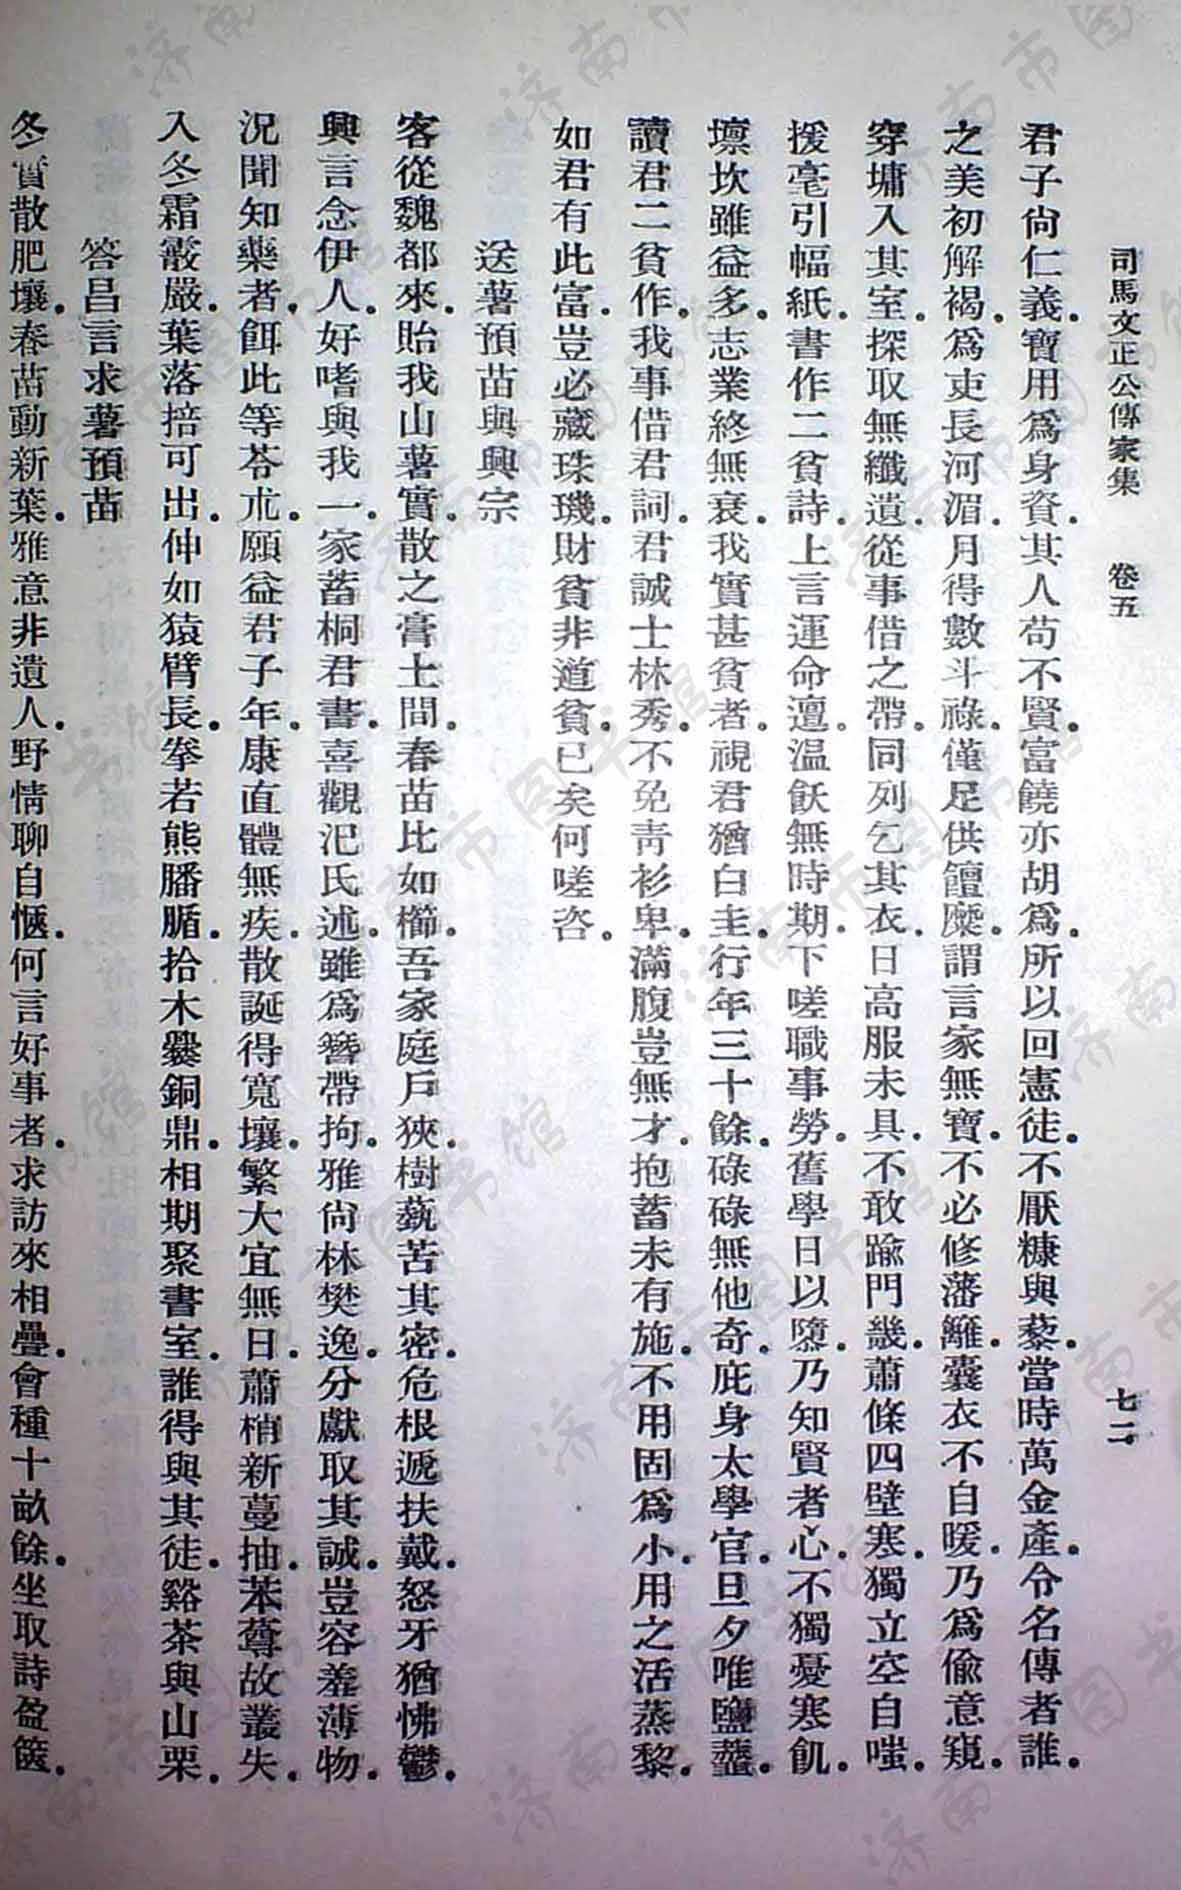 司馬文正公傳家集 卷五 七二
君子尙仁義寶用爲身資其人苟不賢富饒亦胡爲所以回憲徒不厭糠與藜當時萬金產令名傳者誰
之美初解褐爲吏長河湄月得數斗祿僅足供饘糜謂言家無寶不必修藩籬囊衣不自暖乃爲偷意窺
穿墉入其室探取無纖遺從事借之帶同列乞其衣日高服未具不敢踰門畿蕭條四壁寒獨立空自嗤
援毫引幅紙書作二貧詩上言運命邅溫飫無時期下嗟職事勞舊學日以隳乃知賢者心不獨憂寒飢
壞坎雖益多志業終無衰我實甚貧者視君猶白圭行年三十餘碌碌無他奇庇身太學官旦夕唯鹽虀
讀君二貧作我事借君詞君誠士林秀不免靑衫卑滿腹豈無才抱蓄未有施不用固爲小用之活蒸黎
如君有此富豈必藏珠璣財貧非道貧已矣何嗟咨
送薯預苗與興宗
客從魏都來貽我山薯實散之膏土間春苗比如櫛吾家庭戶狹樹蓺苦其密危根遞扶戴怒牙猶怫鬱
興言念伊人好嗜與我一家蓄桐君書喜觀汜氏述雖爲簪帶拘雅尙林樊逸分獻取其誠豈容羞薄物
況聞知藥者餌此等苓朮願益君子年康直體無疾散誕得寬壤繁大宜無日蕭梢新蔓抽苯䔿故叢失
入冬霜霰嚴葉落掊可出伸如猿臂長拳若熊膰腯拾木爨銅鼎相期聚書室誰得與其徒谿茶與山栗
答昌言求薯預苗
冬實散肥壤春苗動新葉雅意非遺人野情聊自愜何言好事者求訪來相疊會種十畝餘坐取詩盈篋